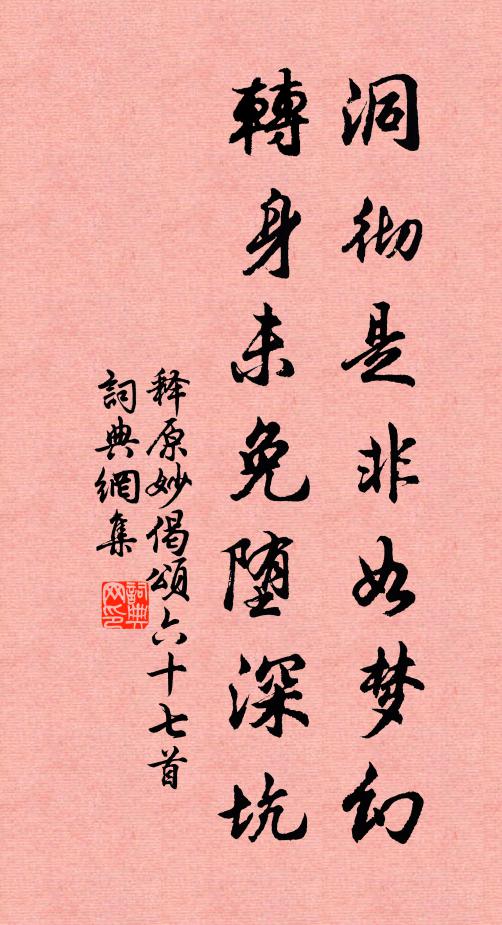 洞彻是非如梦幻
轉身未免堕深坑
释原妙偈頌六十七首
詞典網集
詞典网印